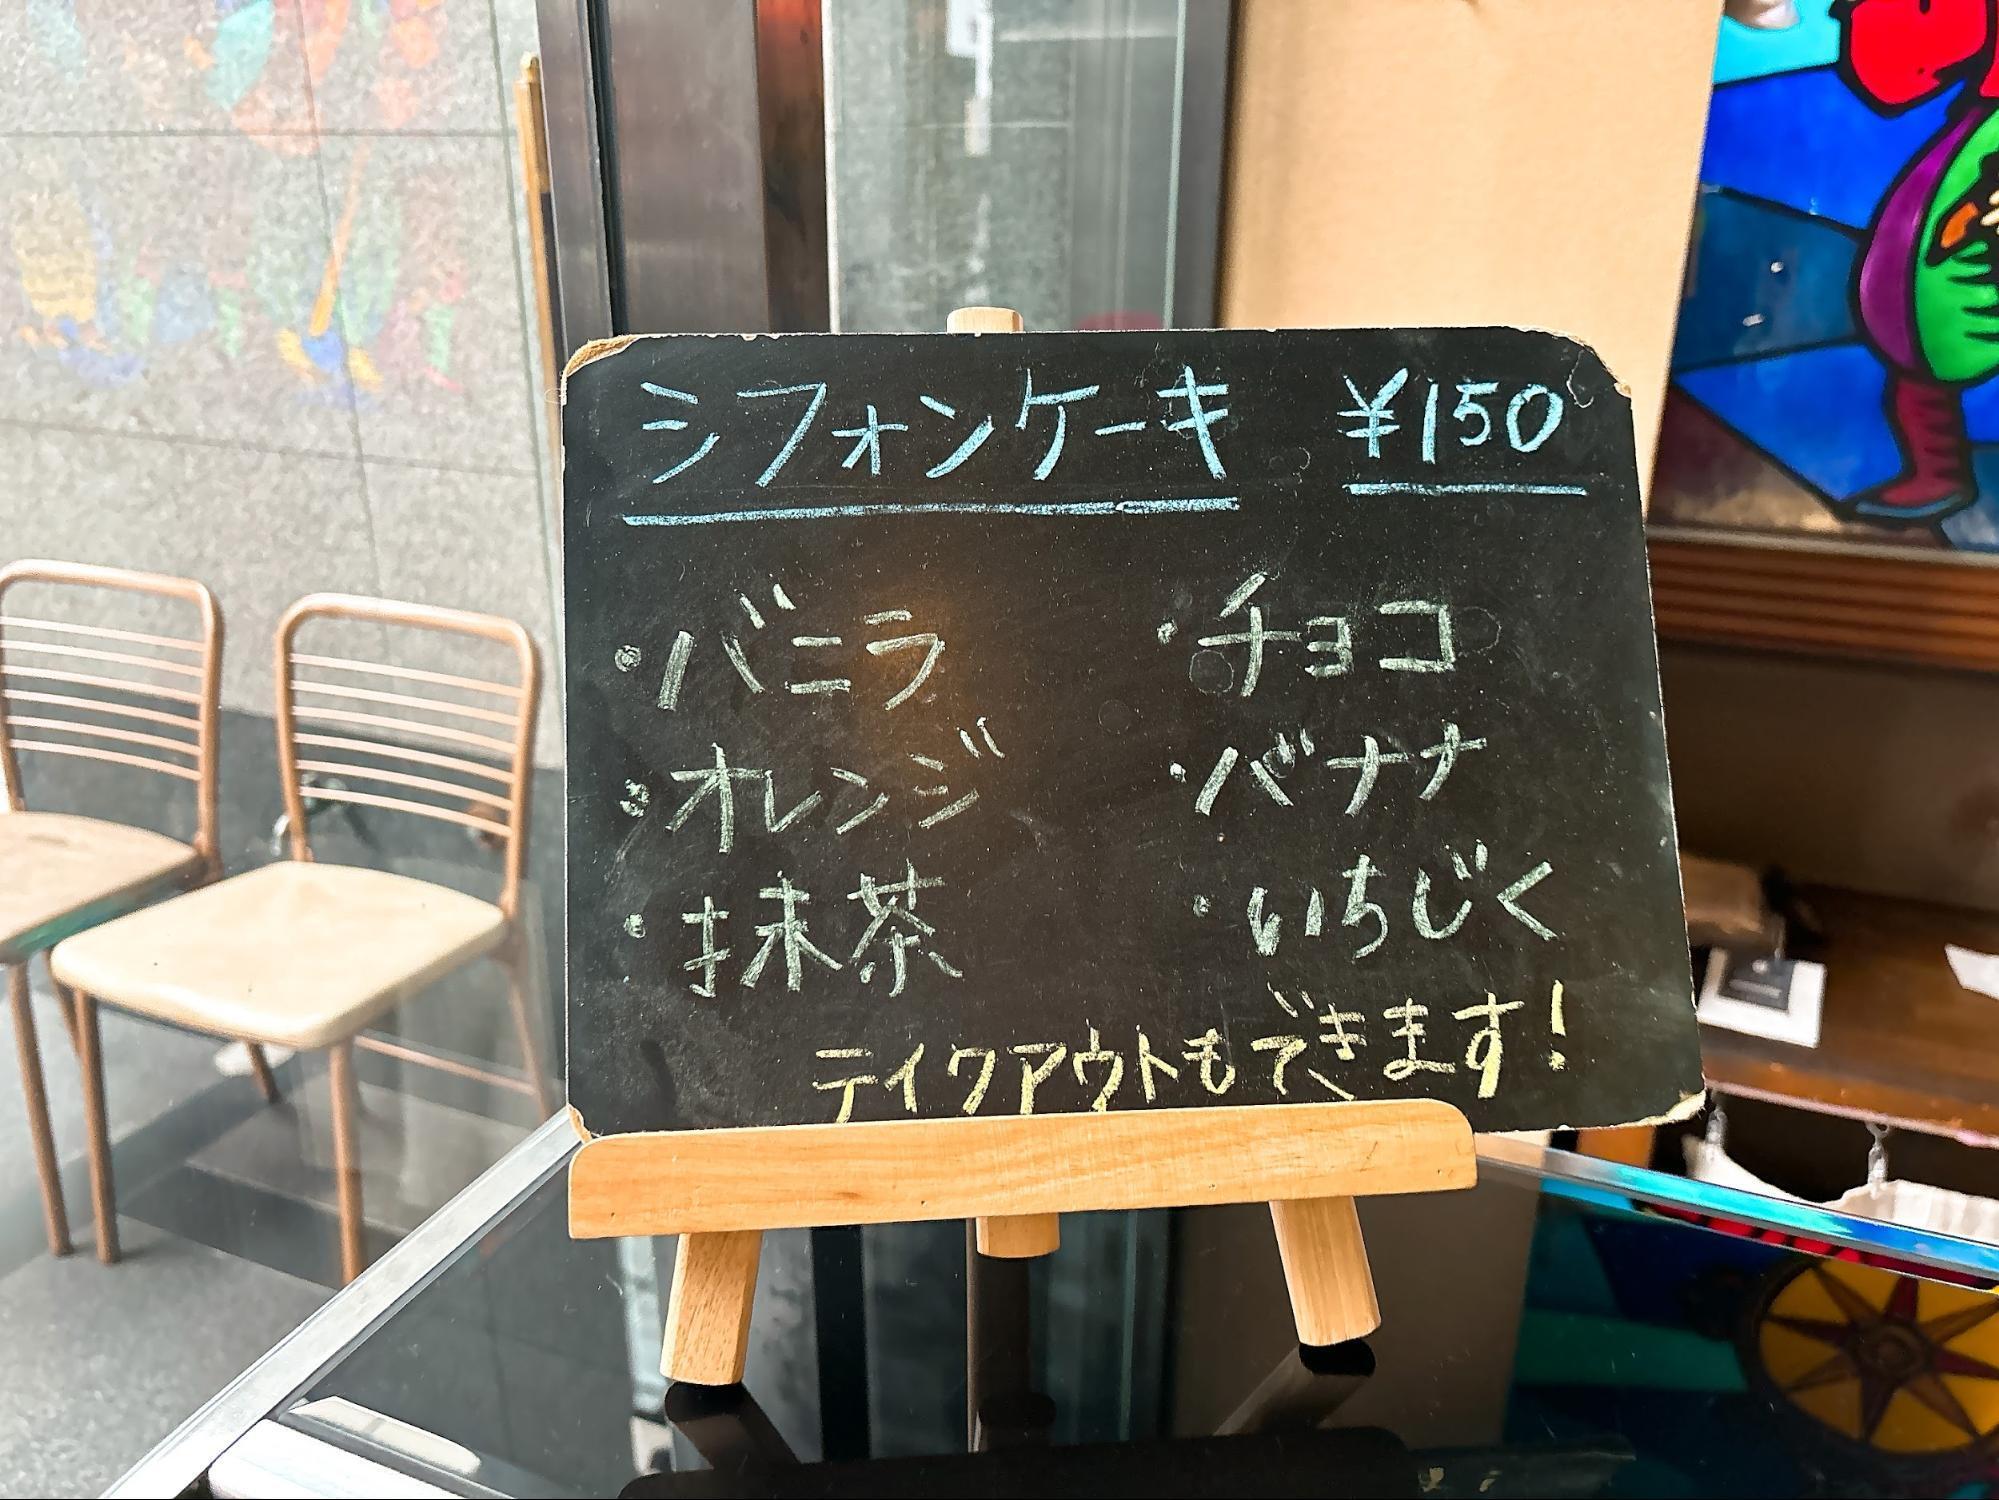 シフォンケーキ ¥150
・バニラ ・チョコ
・オレンジ ・バナナ
・抹茶 ・いちじく
テイクアウトもできます!